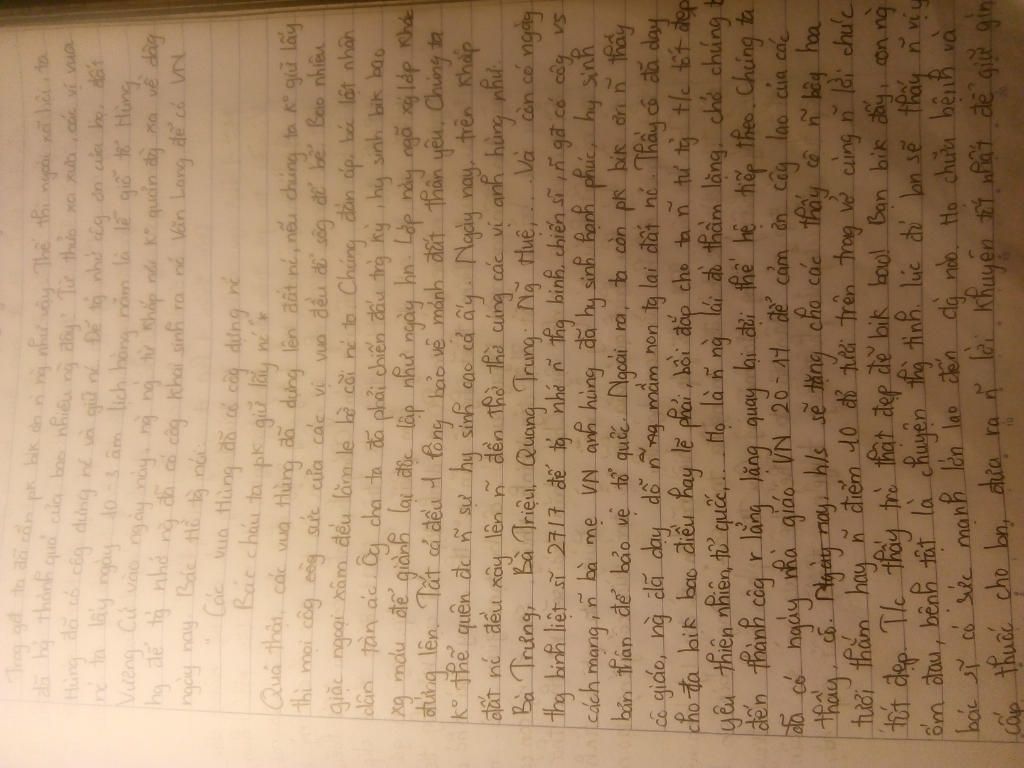 Trog gđ ta đã cần pk bik ơn n ng như vậy. Thế thì ngoài xã hội, ta
đã bg thành quả của bao nhiêu ng đây? Từ thưở xa xưa, các vị vua
Hùng đã có côg dựng nc và giữ nc. Để tg nhớ côg ơn của họ, đất
nc ta lấy ngày 10-3 âm lịch hàng năm là lễ giỗ tổ Hùng
Vương. Cứ vào ngày này, ng ng từ khắp nơi k° quản đg xa về đây
hg để tg nhớ ng đã có côg khai sinh ra nc Văn Lang để có VN
ngày nay. Bác Hồ tg nói
"Các vua Hùng đã có côg dựng nc
Bác cháu ta pk giữ lấy nc"
Quả thật, các vua Hùng đã dựng lên đất nc, nếu chúng ta k° giữ lấy
thì mọi côg sức của các vị vua đều đổ sôg đổ bể. Bao nhiêu
giặc ngoại xâm đều lăm le bờ cõi nc ta. Chúng đàn áp, bóc lột nhân
dân tàn ác. Ôg cha ta đã phải chiến đấu trg kỳ, hy sinh bik bao
xg máu để giành lại độc lập như ngày hn. Lớp này ngã xg, lớp khác
đứng lên. Tất cả đều 1 lòng bảo vệ mảnh đất thân yêu. Chúng ta
k° thể quên đc n sự hy sinh cao cả ấy. Ngày nay, trên khắp
đất nc đều xây lên n đền thờ thờ cúng các vị anh hùng như:
Bà Trưng, Bà Triệu, Quang Trung, Ng Huệ,... Và còn có ngày
thg binh liệt sĩ 27/7 để tg nhớ n thg binh, chiến sĩ, n ng có côg vs
cách mạng, n bà mẹ VN anh hùng đã hy sinh hạnh phúc, hy sinh
bản thân để bảo vệ tổ quốc. Ngoài ra, ta còn pk bik ơn n thầy
cô giáo, ng dã dạy dỗ n mầm non tg lai đất nc. Thầy cô đã dạy
cho ta bik bao điều hay lẽ phải, bồi đắp cho ta n tư tg, t/c tốt đẹp
yêu thiên nhiên, tổ quốc,... Họ là n ng lái đò thầm lặng, chở chúng t
đến thành côg r lẳng lặng quay lại đợi thế hệ tiếp theo. Chúng ta
đã có ngày nhà giáo VN 20-11 để cảm ơn côg lao của các
thầy, cô. Ngày nay h/s sẽ tặng cho các thầy cô n bông hoa
tươi thắm hay n điểm 10 đỏ tươi trên trag vở cùng n lời chúc
tốt đẹp. T/c thầy trò thật đẹp đẽ bik bao! Bạn bik đấy, con ng
ốm đau, bệnh tật là chuyện thg tình. Lúc đó bn sẽ thấy n vị
bác sĩ có sức mạnh lớn lao đến dg nào. Họ chữa bệnh và
cấp thuốc cho bn, đưa ra n lời khuyên tốt nhất để giữ gìn